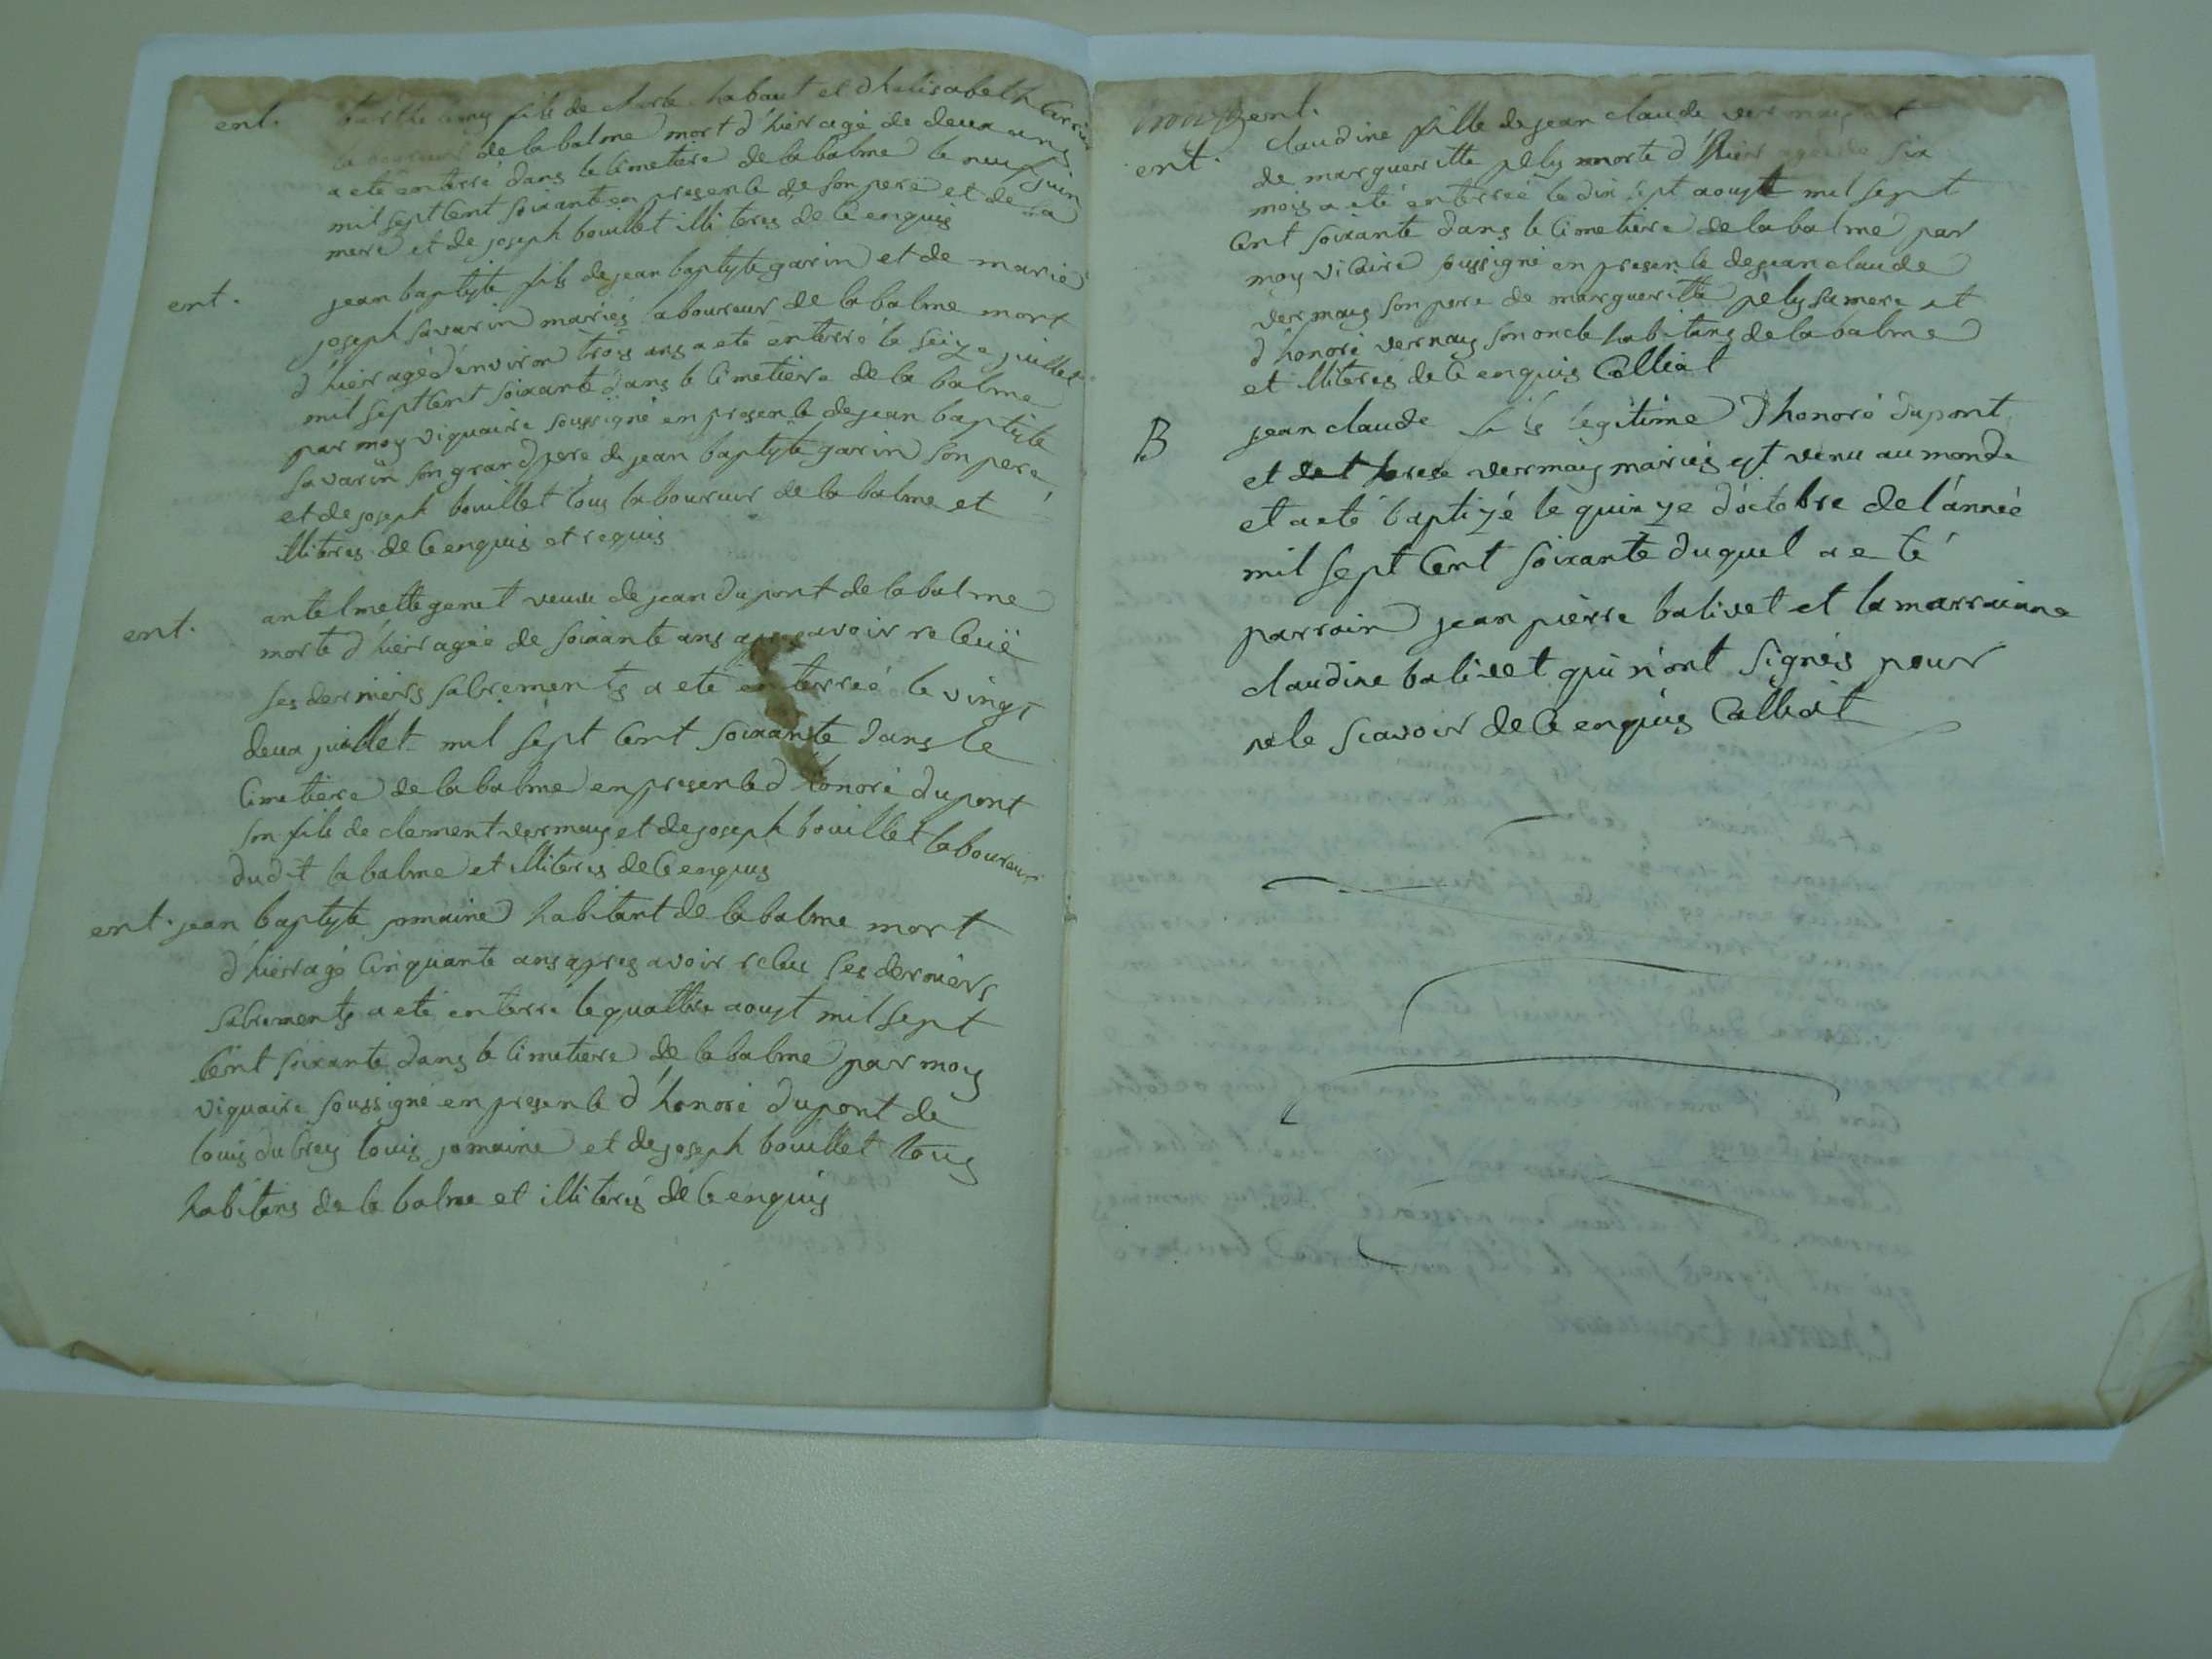 ent. barthelemy fils de charle habaut et dhelisabeth
laboureur de la balme mort d'hier agé de deux ans
a eté enterré dans le Cimetiere de la balme le neuf juin
mil sept Cent soixante en presence de son pere et de sa
mere et de joseph bouillet illiterés de Ce enquis
ent. jean baptiste fils de jean baptyte garin et de marie
joseph savarin mariés laboureur de la balme mort
d'hier agé d'environ trois ans a eté enterré le seize juillet
mil sept Cent soixante dans le Cimetiere de la balme
par moy viquaire soussigné en presence de jean baptiste
savarin son grand pere de jean baptyte garin son pere
et de joseph bouillet tous laboureur de la balme et
illiterés de Ce enquis et requis
ent. antelmette genet veuve de jean dupont de la balme
morte d'hier agée de soixante ans apres avoir receüe
ses derniers sacrements a eté enterreé le vingt
deux juillet mil sept Cent soixante dans le
Cimetiere de la balme en presence d'honoré dupont
son fils de clement vermay et de joseph bouillet laboureur
dudit la balme et illiterés de Ce enquis
ent. jean baptyte jomaine habitant de la balme mort
d'hier agé Cinquante ans apres avoir receu ses derniers
sacrements a eté enterré le quattre aoust mil sept
Cent soixante dans le Cimetiere de la balme par moy
viquaire soussigné en presence d'honoré dupont de
louis dubrey louis jomaine et de joseph bouillet tous
habitans de la balme et illiterés de Ce enquis
ent.
ent. claudine fille de jean claude vermay et
de margueritte pely morte d'hier agée de six
mois a eté enterreé le dix sept aoust mil sept
Cent soixante dans le Cimetiere de la balme par
moy vicaire soussigné en presence de jean claude
vermay son pere de margueritte pely sa mere et
d'honoré vernay son oncle habitans de la balme
et illiterés de Ce enquis Calliat
B jean claude fils legitime d'honoré dupont
et de therese vermay mariés est venu au monde
et a eté baptizé le quinze d'octobre de l'année
mil sept Cent soixante duquel a eté
parrain jean pierre balivet et la marraine
claudine balivet qui n'ont signés pour
ne le scavoir de Ce enquis Calliat